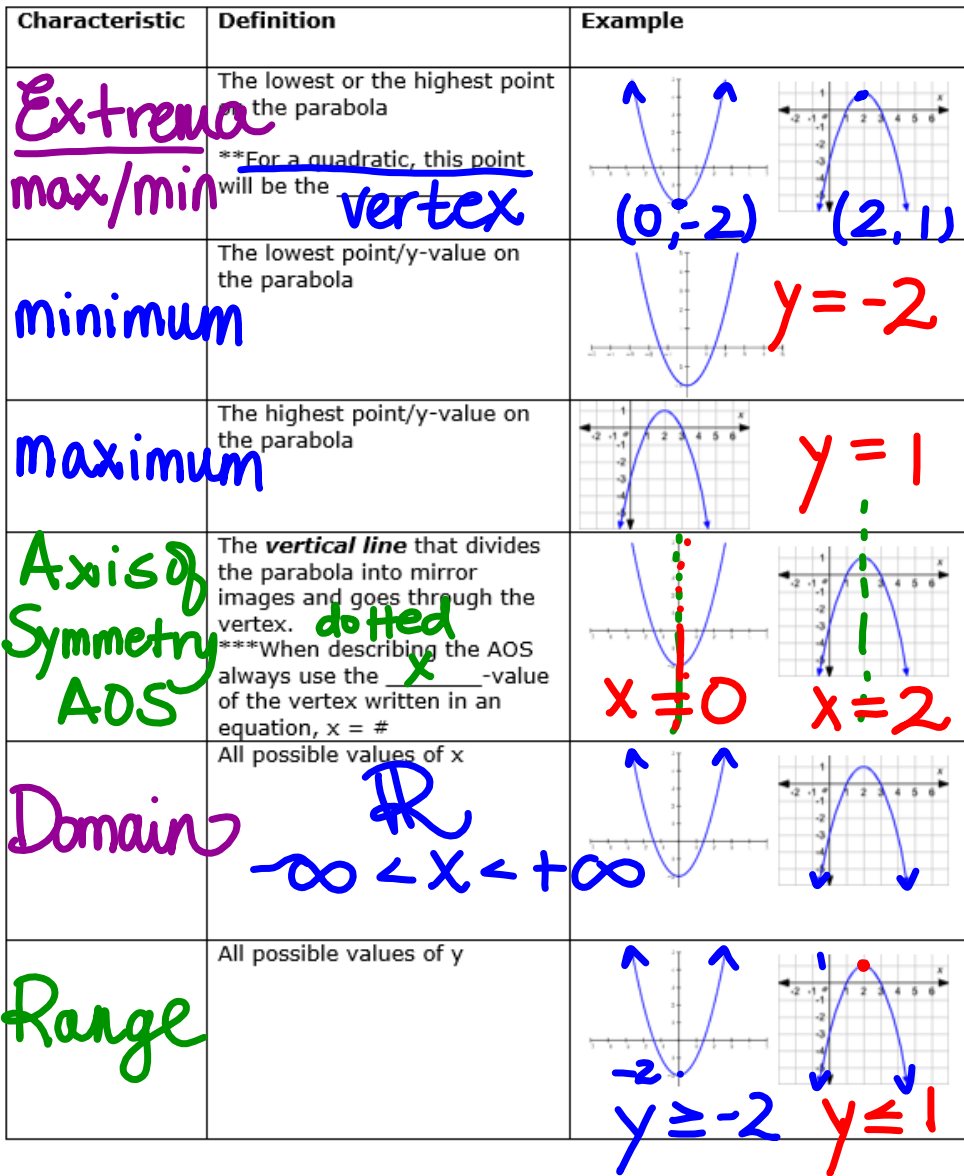 Characteristic Definition Example
Extrema
max/min
The lowest or the highest point
on the parabola
**For a quadratic, this point
will be the ________
vertex
(0,-2) (2, 1)
minimum
The lowest point/y-value on
the parabola
y = -2
maximum
The highest point/y-value on
the parabola
y = 1
Axis of
Symmetry
AOS
The vertical line that divides
the parabola into mirror
images and goes through the
vertex. dotted
***When describing the AOS
always use the ___x___-value
of the vertex written in an
equation, x = #
x = 0 x = 2
Domain
All possible values of x
ℝ
-∞ < x < +∞
Range
All possible values of y
-2 1
y ≥ -2 y ≤ 1